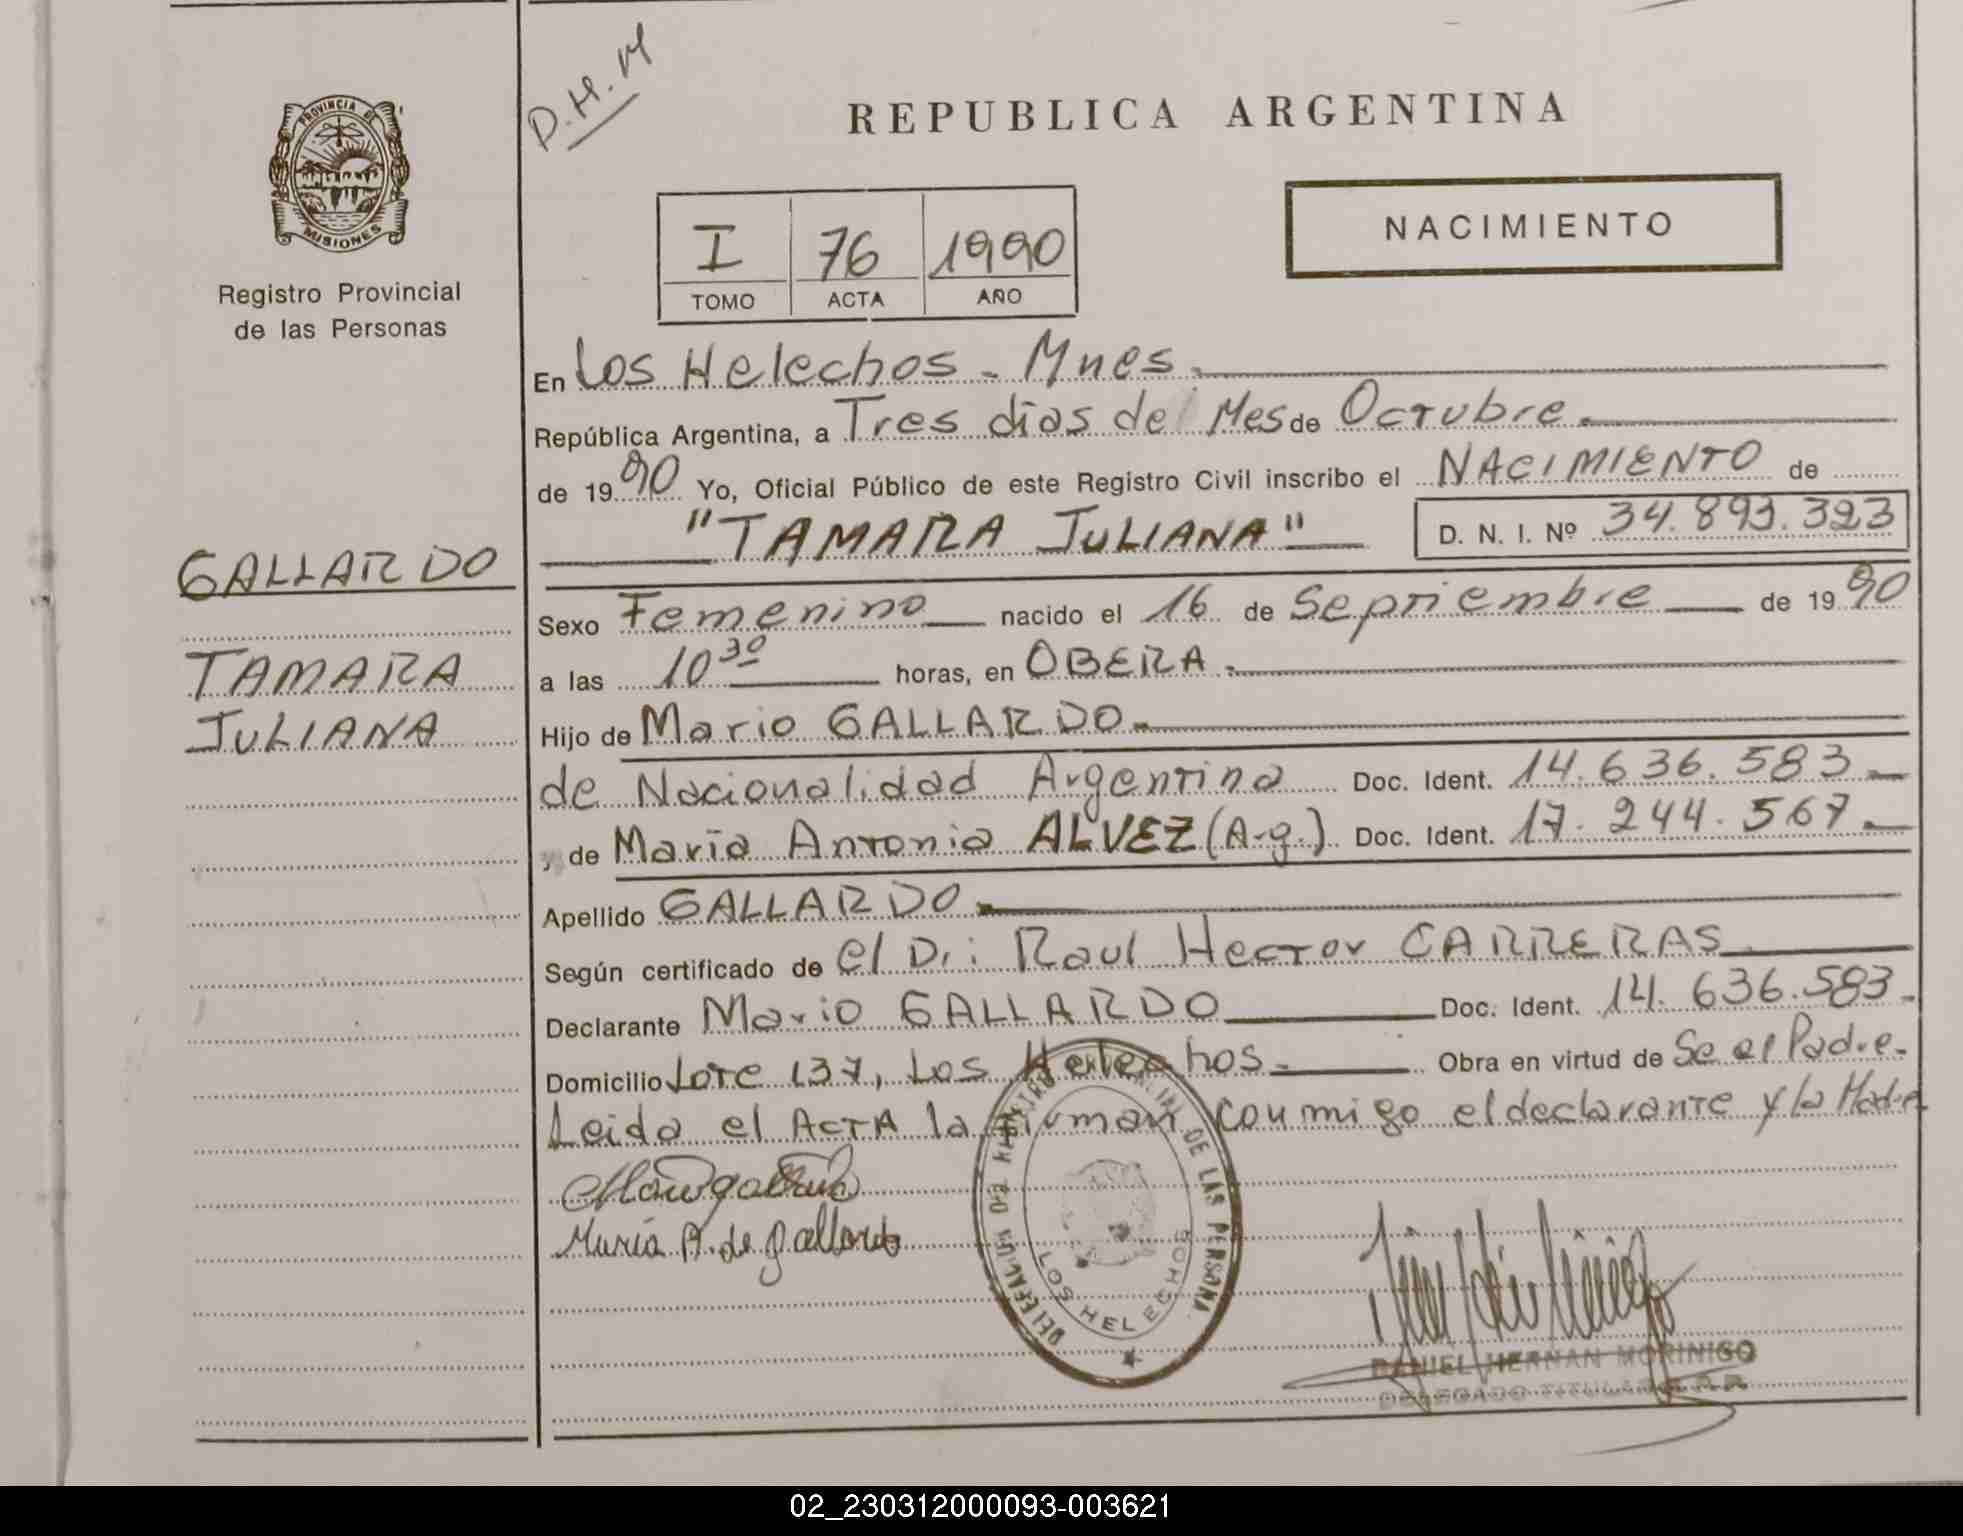 D.H.M
REPUBLICA ARGENTINA
PROVINCIA DE
MISIONES
Registro Provincial
de las Personas
I 76 1990
TOMO ACTA AÑO
NACIMIENTO
En Los Helechos - Mnes.
República Argentina, a Tres días del Mes de Octubre.
de 1990 Yo, Oficial Público de este Registro Civil inscribo el NACIMIENTO de
"TAMARA JULIANA" D. N. I. Nº 34.893.323
GALLARDO
TAMARA
JULIANA
Sexo Femenino nacido el 16 de Septiembre de 1990
a las 10 30 horas, en OBERA.
Hijo de Mario GALLARDO.
de Nacionalidad Argentina Doc. Ident. 14.636.583
y de María Antonia ALVEZ (Arg.) Doc. Ident. 17.244.567
Apellido GALLARDO
Según certificado de el Dr: Raul Hector CARRERAS
Declarante Mario GALLARDO Doc. Ident. 14.636.583.
Domicilio Lote 137, Los Helechos. Obra en virtud de Se el Padre.
Leida el ACTA la firman conmigo el declarante y la Madre
María A. de Gallardo
LOS HELECHOS
DANIEL HERNAN MORINIGO
DELEGADO TITULAR
02_230312000093-003621